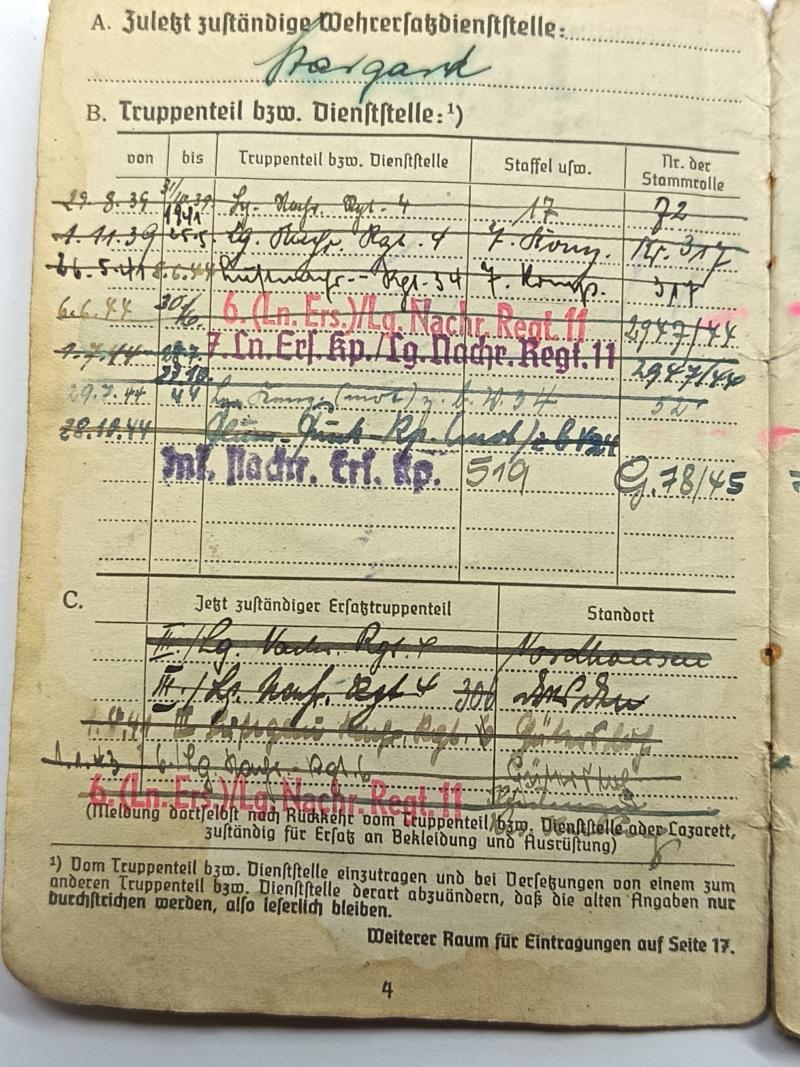 A. Zuletzt zuständige Wehrersatzdienststelle:
Stargard
B. Truppenteil bzw. Dienststelle:¹)
von bis Truppenteil bzw. Dienststelle Staffel usw. Nr. der Stammrolle
29. 8. 39 31/10.39 Lg. Nachr. Rgt. 4 17 72
1. 11. 39 1941 25.5. Lg. Nachr. Rgt. 4 7. Komp. Nr. 317
26. 5. 41 5.6.44 Rgt. 34 7. Komp. 317
6.6.44 30/6. 6. (Ln. Ers.)/Lg. Nachr. Regt. 11 2947/44
1. 7. 44 28.7. 7. Ln. Ers. Kp./Lg. Nachr. Regt. 11 2947/44
29.7.44 27.10. 44 (mot) z. b. V. 34 52
28.10.44 Kp. (mot) z b V 24
Inf. Nachr. Ers. Kp. 519 G. 78/45
C. Jetzt zuständiger Ersatztruppenteil Standort
II./Lg. Nachr. Rgt. 4 Nordhausen
III./Lg. Nachr. Rgt 4
Nachr. Rgt.
1.1.43 6./Lg. Nachr. Rgt. 6
6. (Ln. Ers.)/Lg. Nachr. Regt. 11
(Meldung dortselbst nach Rückkehr vom Truppenteil bzw. Dienststelle oder Lazarett,
zuständig für Ersatz an Bekleidung und Ausrüstung)
¹) Vom Truppenteil bzw. Dienststelle einzutragen und bei Versetzungen von einem zum
anderen Truppenteil bzw. Dienststelle derart abzuändern, daß die alten Angaben nur
durchstrichen werden, also leserlich bleiben.
Weiterer Raum für Eintragungen auf Seite 17.
4